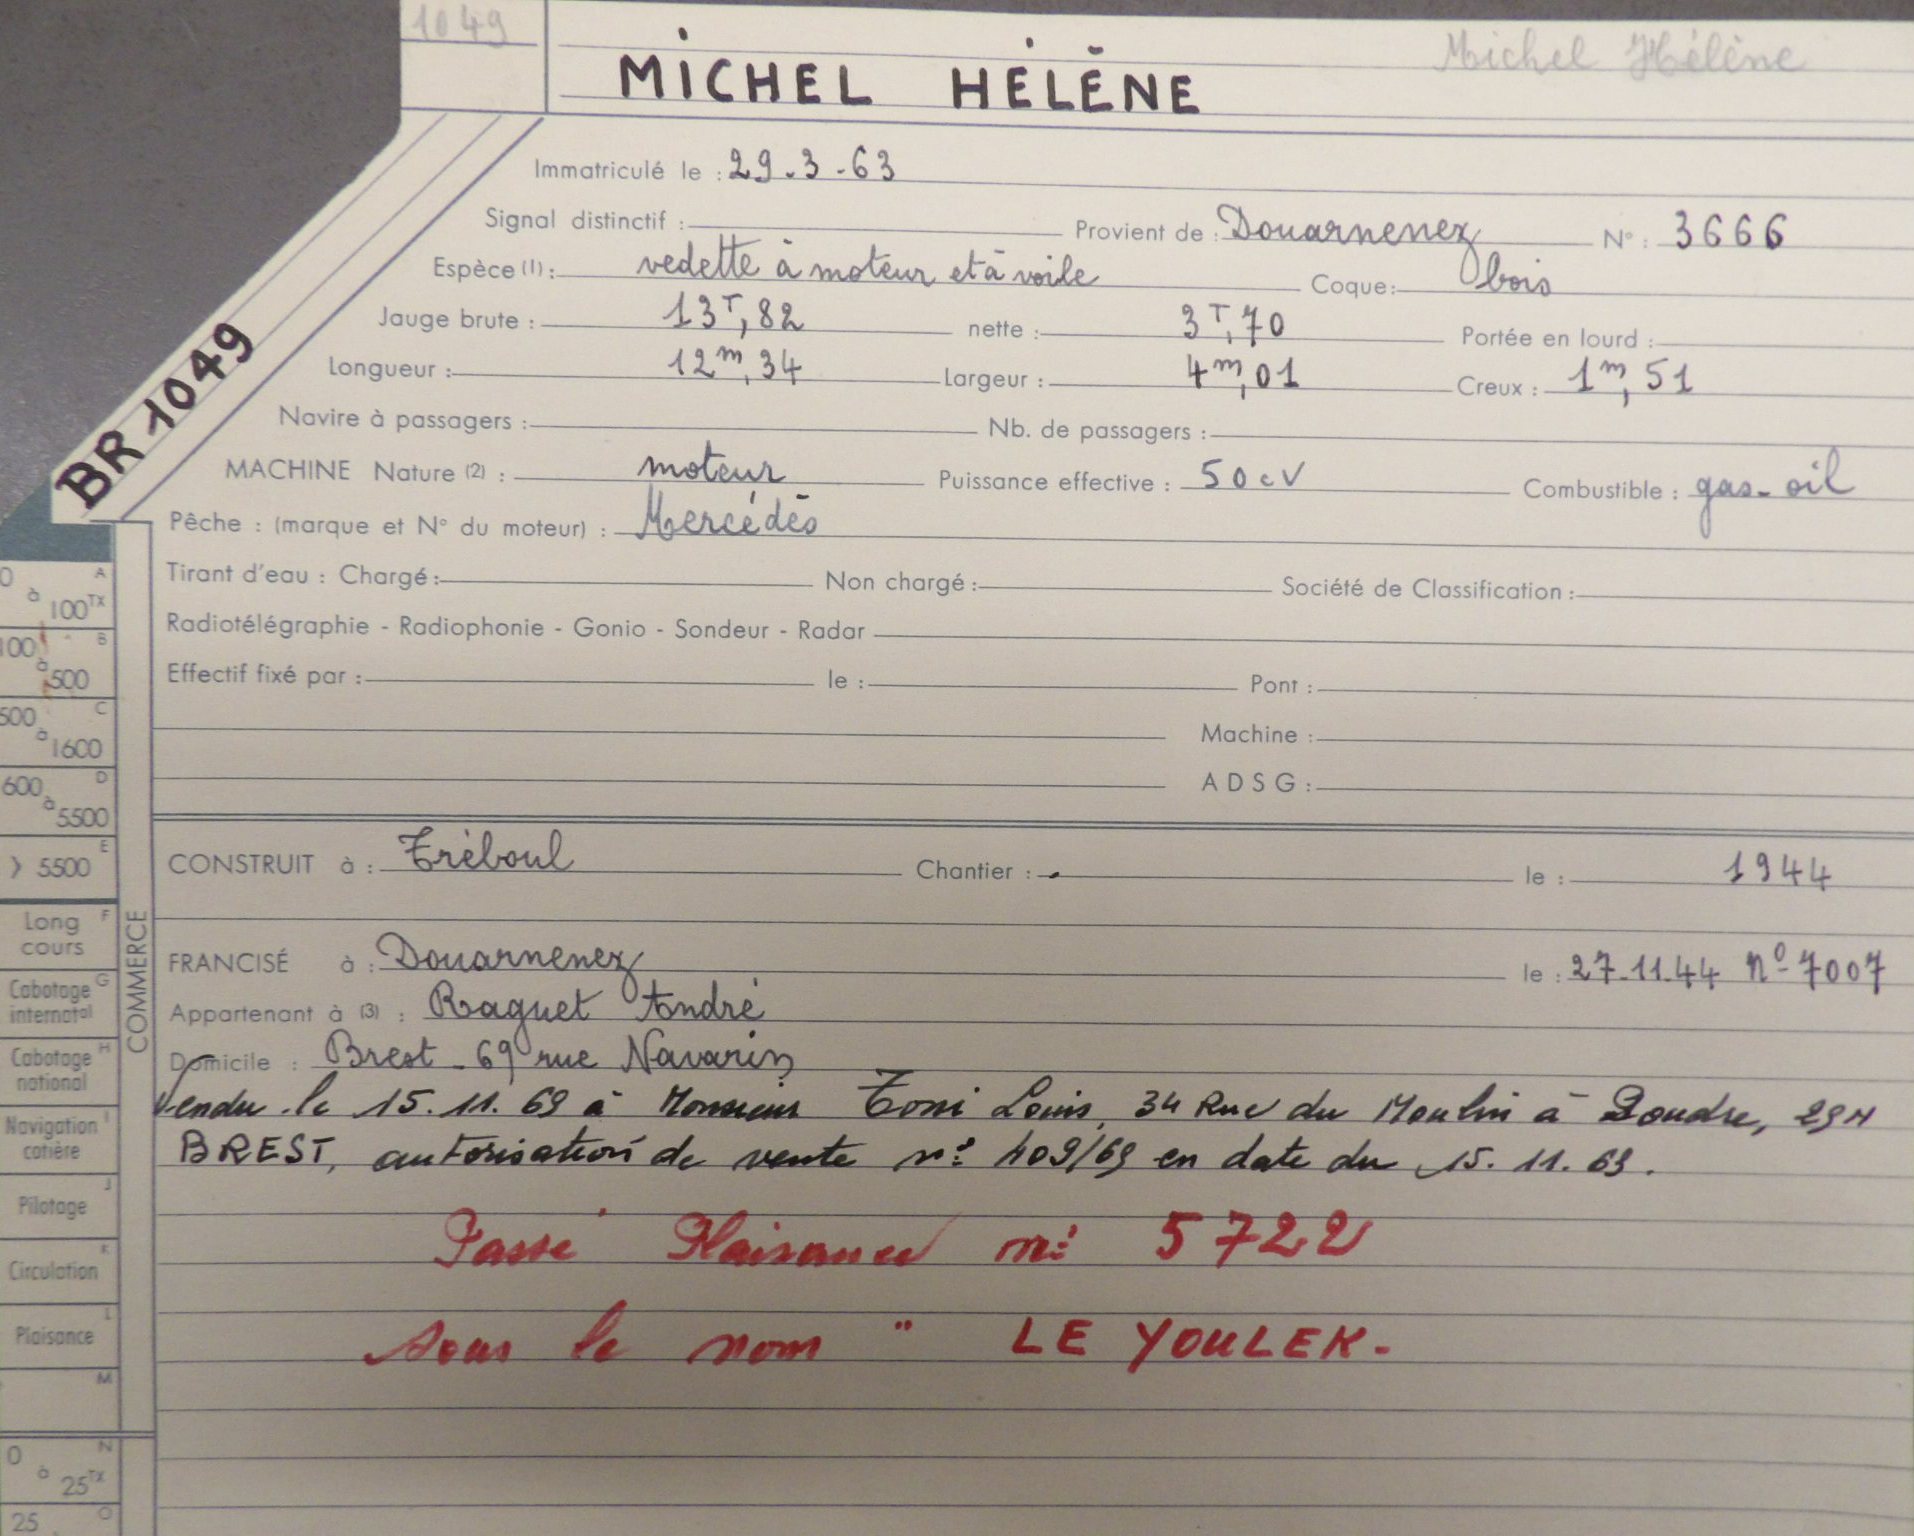 1049
Michel Hélène
MICHEL HÉLÈNE
Immatriculé le : 29.3-63
Signal distinctif : Provient de : Douarnenez N° : 3666
Espèce (1) : vedette à moteur et à voile Coque : bois
Jauge brute : 13T,82 nette : 3T,70 Portée en lourd :
Longueur : 12m,34 Largeur : 4m,01 Creux : 1m,51
Navire à passagers : Nb. de passagers :
MACHINE Nature (2) : moteur Puissance effective : 50 cV Combustible : gas-oil
Pêche : (marque et N° du moteur) : Mercédès
Tirant d'eau : Chargé : Non chargé : Société de Classification :
Radiotélégraphie - Radiophonie - Gonio - Sondeur - Radar
Effectif fixé par : le : Pont :
Machine :
ADSG :
CONSTRUIT à : Tréboul Chantier : le : 1944
FRANCISÉ à : Douarnenez le : 27-11.44 n° 7007
Appartenant à (3) : Raguet André
Domicile : Brest - 69 rue Navarin
Vendu le 15.11.69 à Monsieur Louis, 34 Rue du Moulin à Poudre, 29N
BREST, autorisation de vente n° 409/69 en date du 15.11.69.
Passé Plaisance n° 5722
sous le nom " LE YOULEK.
BR 1049
COMMERCE
0 à 100TX A
100 à 500 B
500 à 1600 C
600 à 5500 D
> 5500 E
Long cours F
Cabotage international G
Cabotage national H
Navigation cotière I
Pilotage J
Circulation K
Plaisance L
M
0 à 25TX N
25 O